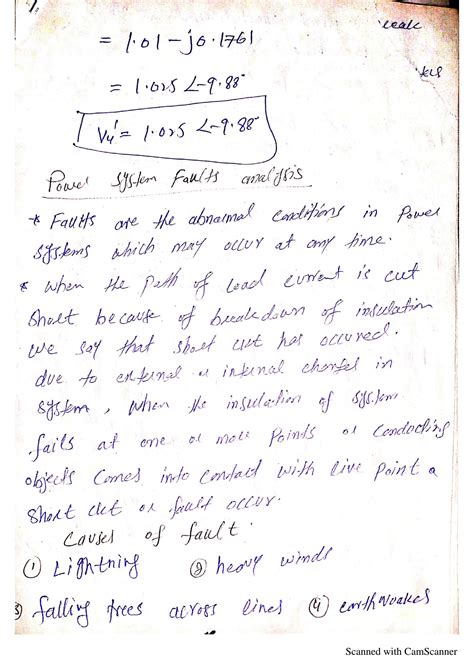 leak
= 1.01 - j0.1761
= 1.025 ∠-9.88°
V4' = 1.025 ∠-9.88°
Power System Faults analysis
* Faults are the abnormal conditions in Power
systems which may occur at any time.
* when the path of load current is cut
short because of breakdown of insulation
we say that short cut has occured.
due to external or internal in
system, when the insulation of system
fails at one or more Points or conducting
objects comes into contact with live point a
short cut or fault occur.
Causes of fault
① Lightning ② heavy winds
3) falling trees across lines ④ earthquakes
Scanned with CamScanner